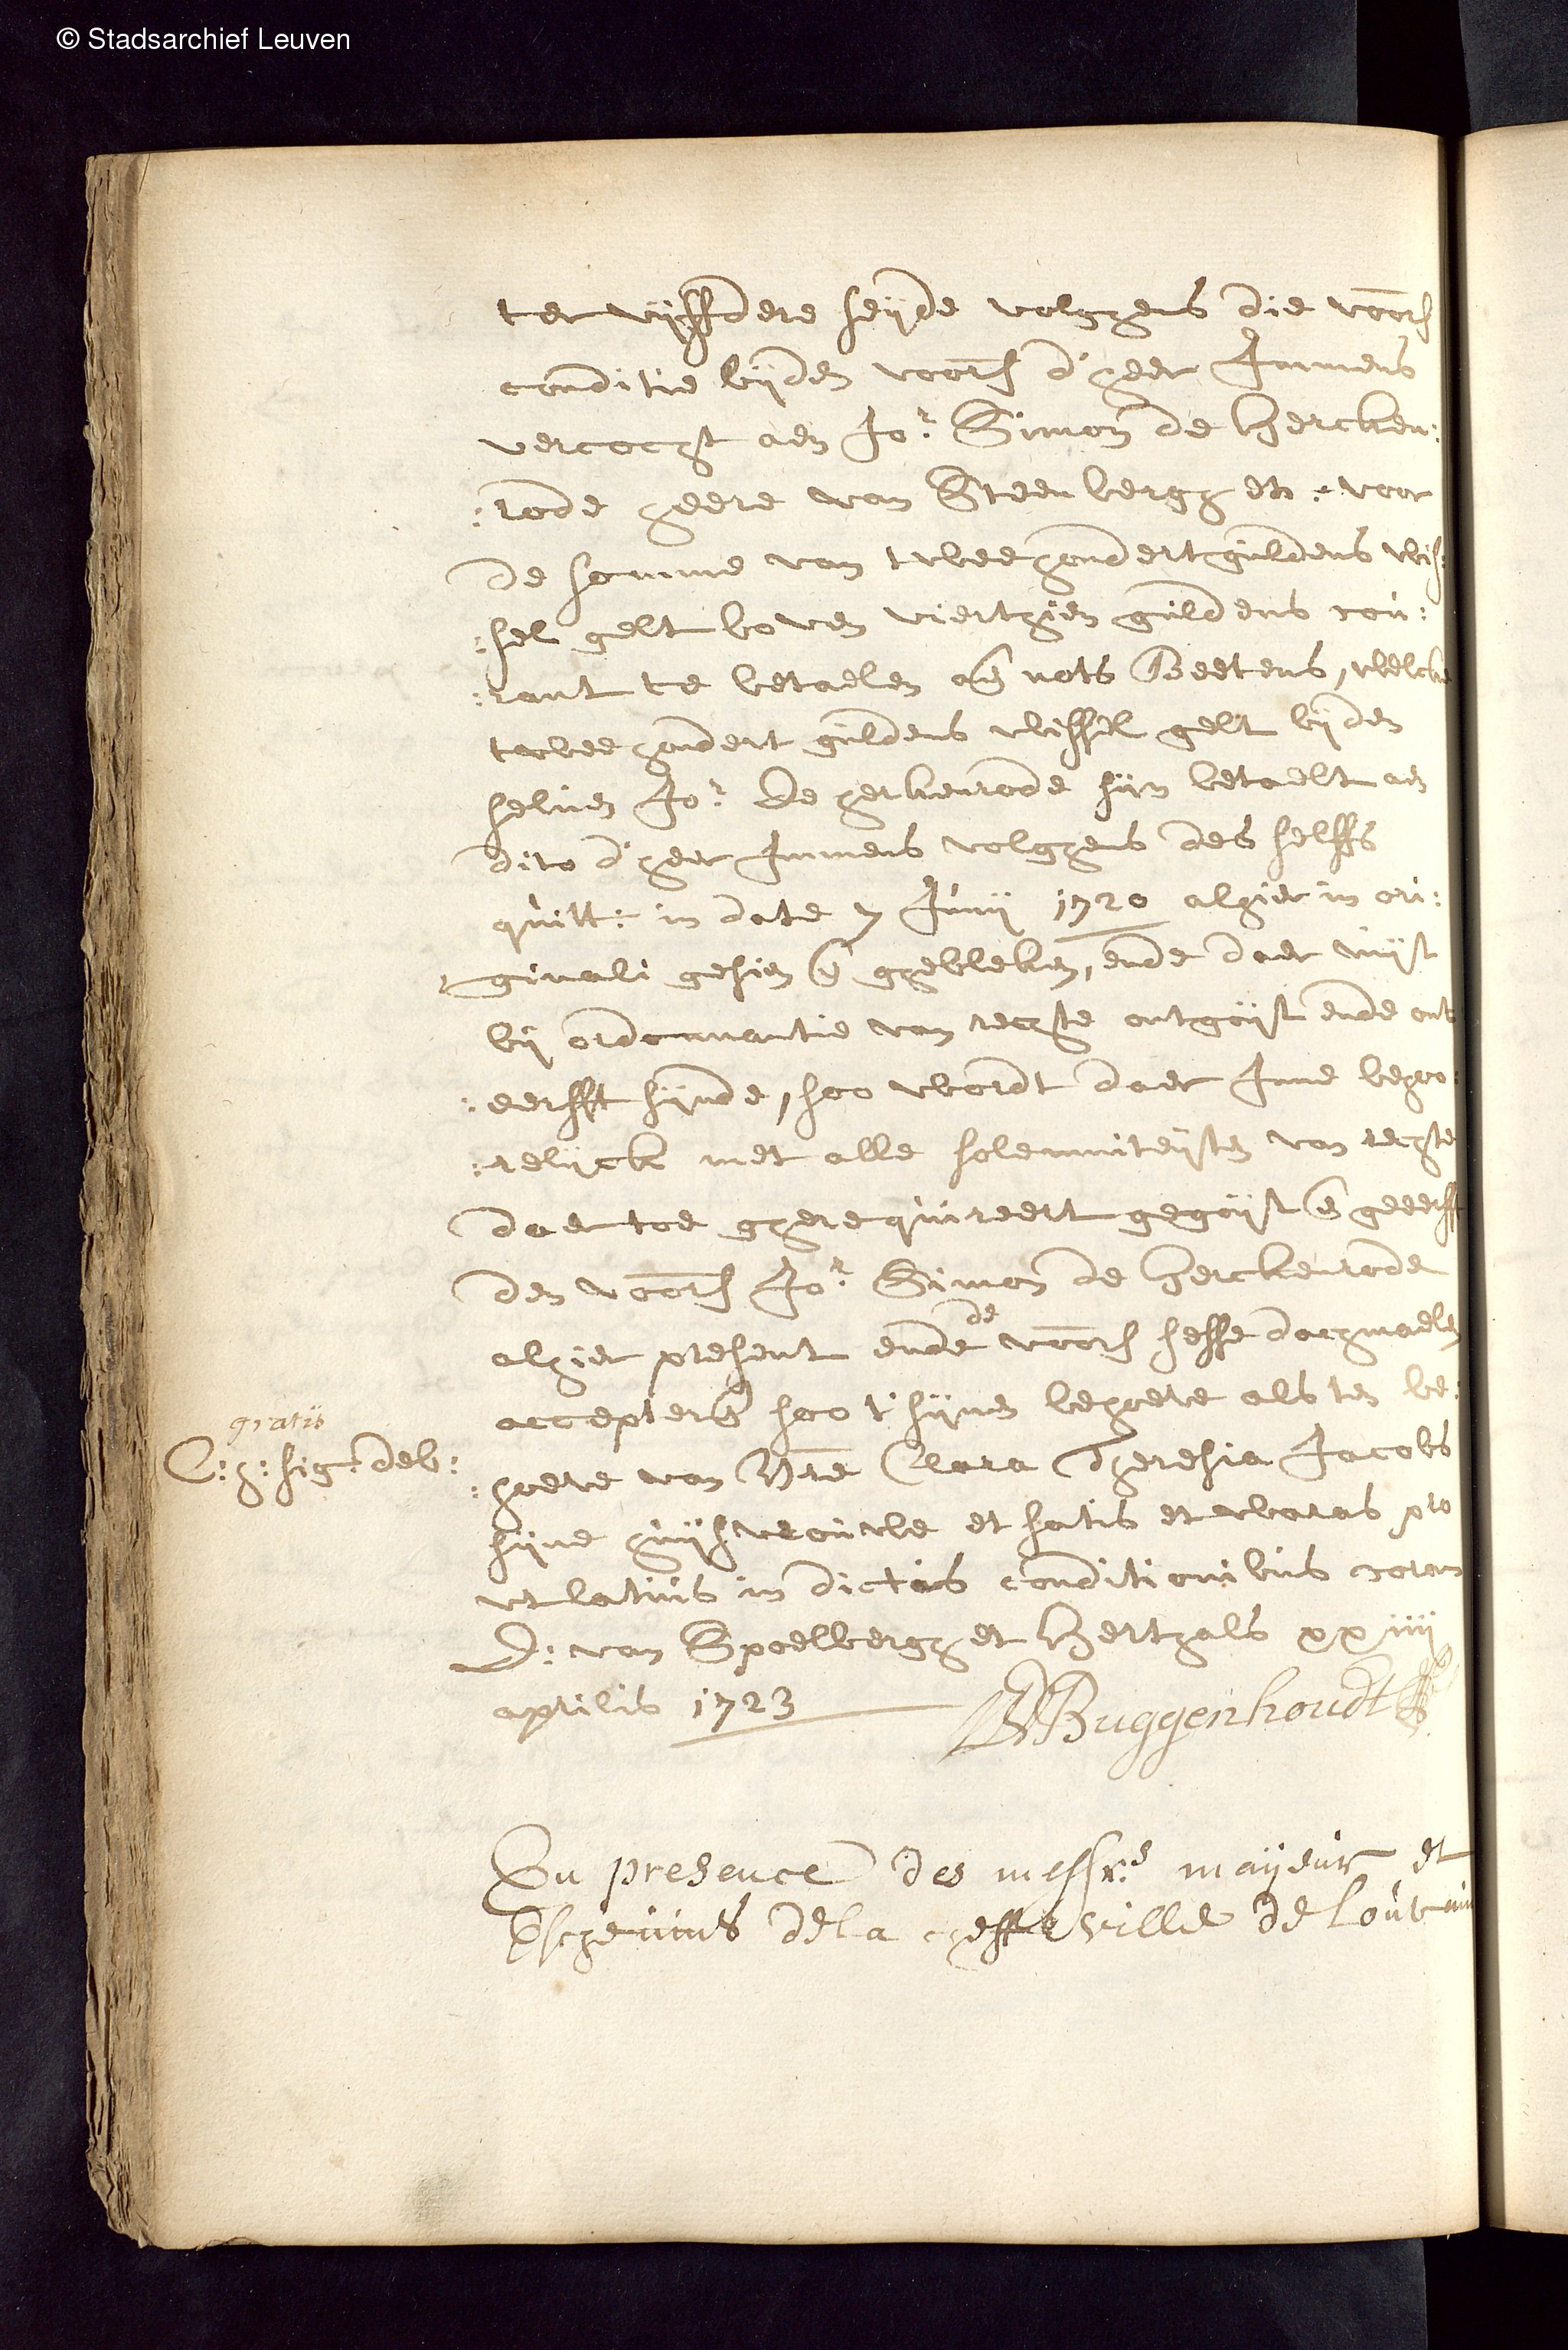 © Stadsarchief Leuven
ter vijffdere seijde volghens die voors
conditie bijden voors d'heer Immens
vercocht aen Jo.r Simon de Hercken:
:rode heere van Steenbergh etc. voor
de somme van twee hondert guldens wis:
:sel gelt boven vierthien guldens cou:
:rant te betaelen aen nots Beetens, welcke
twee hondert guldens wissel gelt bijden
selven Jo.r de herkenrode sijn betaelt aen
dito d'heer Immens volghens des selffs
quitt: in date 7 Junij 1720 alhier in ori:
ginali gesien en ghebleken, ende daer uijt
bij ordonnantie van rechte ontgoijt ende ont
:eerfft sijnde, soo wordt daer inne behoo:
:relijck met alle solemniteijten van rechte
daertoe gherequireert gegoijt en geeerfft
den voors Jo.r Simon de Herckenrode
alhier present ende de voors sesse dachmaelen
accepteren soo t'sijnen behoeve als ten be:
gratis
C: h: sig: deb:
:hoeve van Vre Clara Theresia Jacobs
sijne huijsvrouwe et satis et waras pro
ut latius in dictis conditionibus coram
D: van Spoelbergh et Herthals xxiiij
aprilis 1723
Buggenhoudt
En presence des messrs maijeur et
Eschevins dela cheffe ville de Louvain